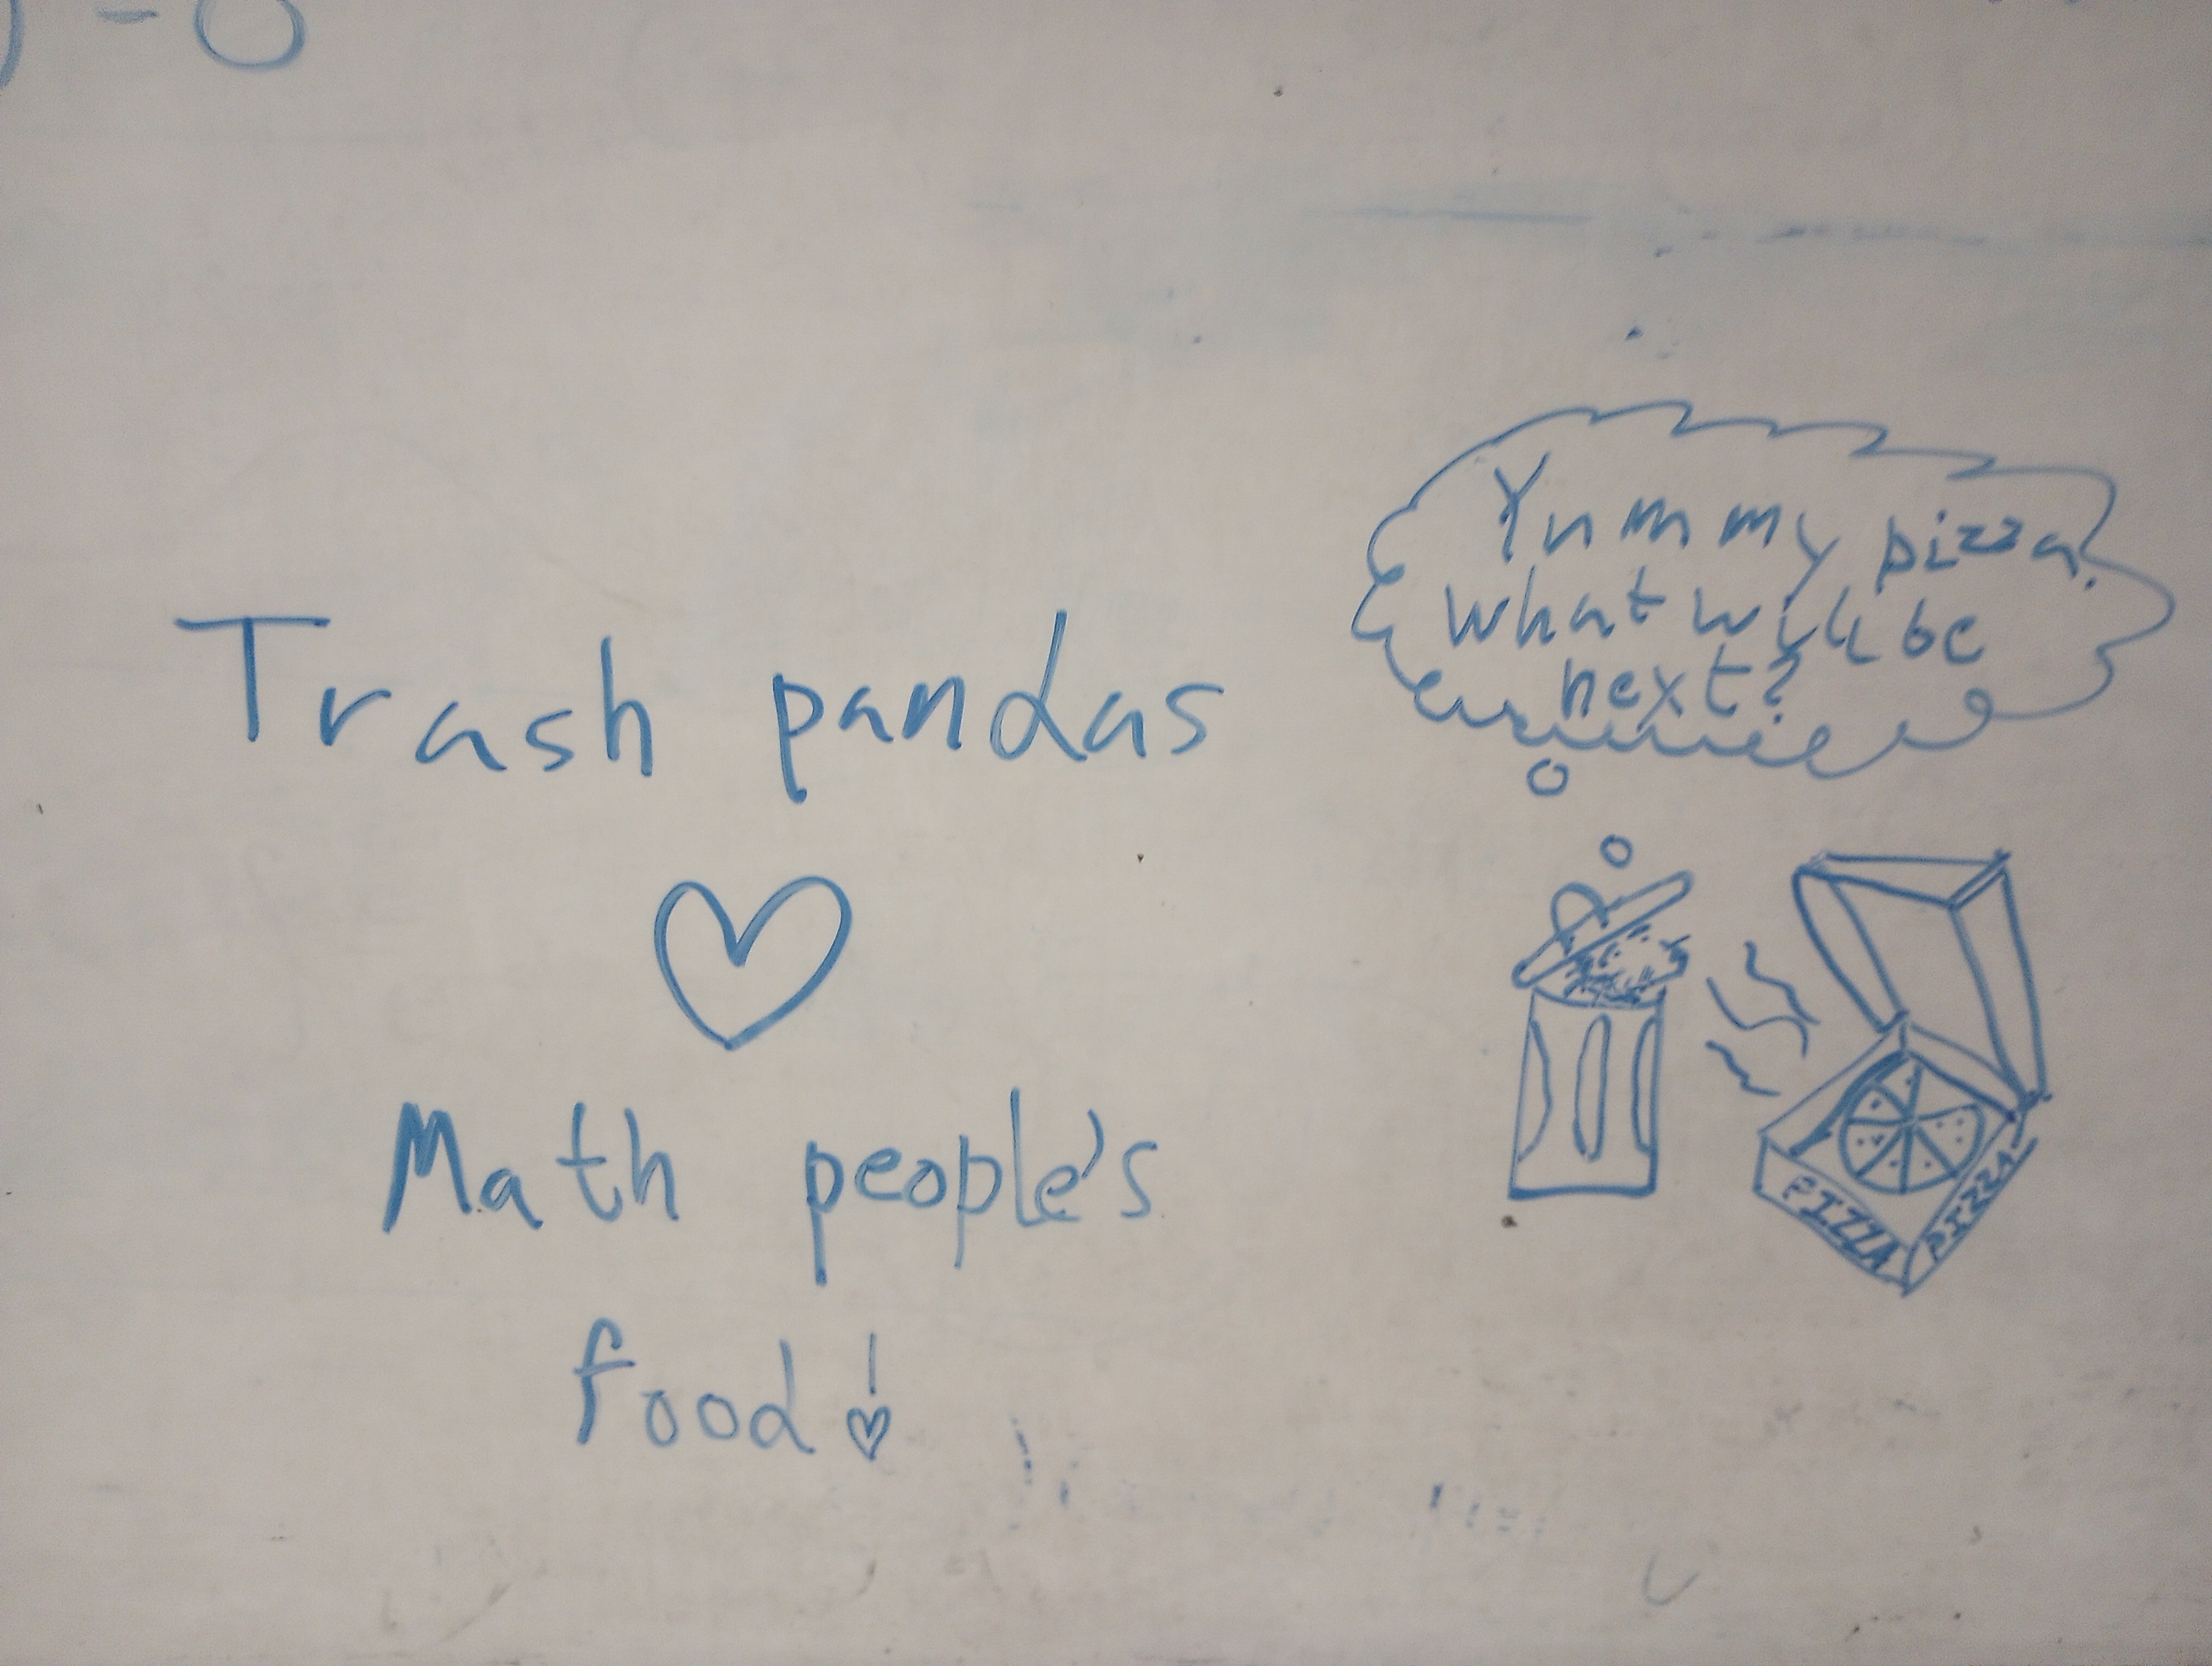 ) - 0
Trash pandas
♡
Math people's
food!
Yummy pizza.
What will be
next?
PIZZA
PIZZA